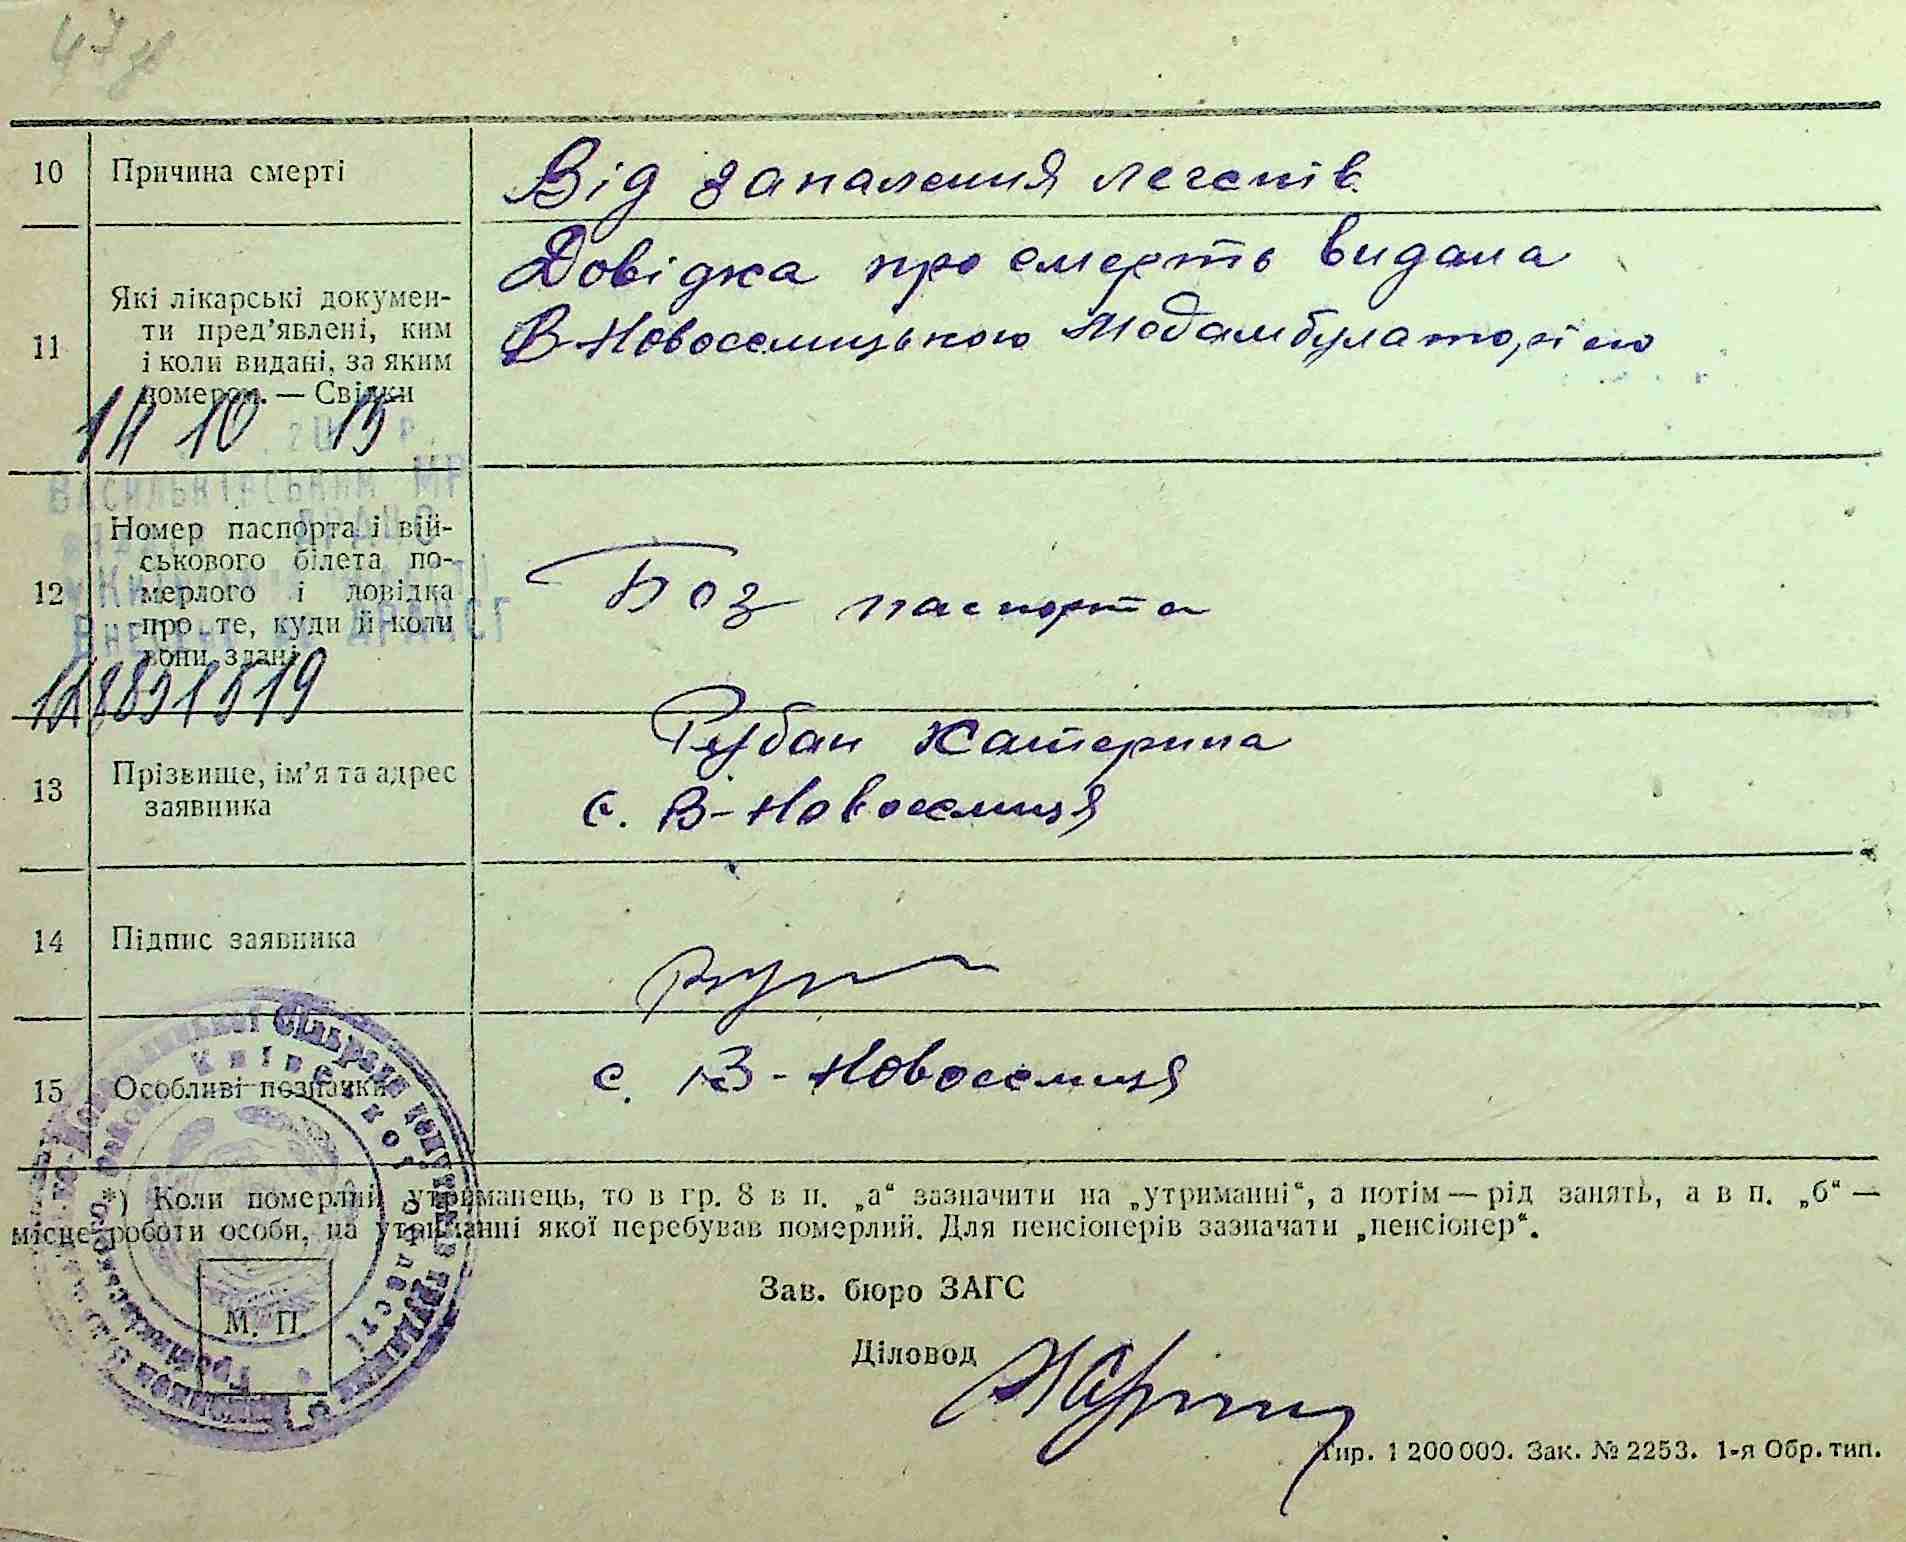 10 Причина смерті
Від запалення легенів
11 Які лікарські докумен-
ти пред’явлені, ким
і коли видані, за яким
номером. — Свідки
Довідка про смерть видана
В-Новоселицькою Медамбулаторією
14 10 15
20 р.
Васильківським МР
ДРАЦС
12 Номер паспорта і вій-
ськового білета по-
мерлого і довідка
про те, куди й коли
вони здані
Без паспорта
Внесено ДРАЦСГ
13 Прізвище, ім’я та адрес
заявника
Рубан Катерина
с. В-Новоселиця
14 Підпис заявника
15 Особливі позначки
с. В-Новоселиця
Сільрада депутатів трудящих
Київської області
*) Коли померлий утриманець, то в гр. 8 в п. „а“ зазначити на „утриманні“, а потім — рід занять, а в п. „б“ —
місце роботи особи, на утриманні якої перебував померлий. Для пенсіонерів зазначати „пенсіонер“.
М. П.
Зав. бюро ЗАГС
Діловод
Тир. 1 200 000. Зак. № 2253. 1-я Обр. тип.